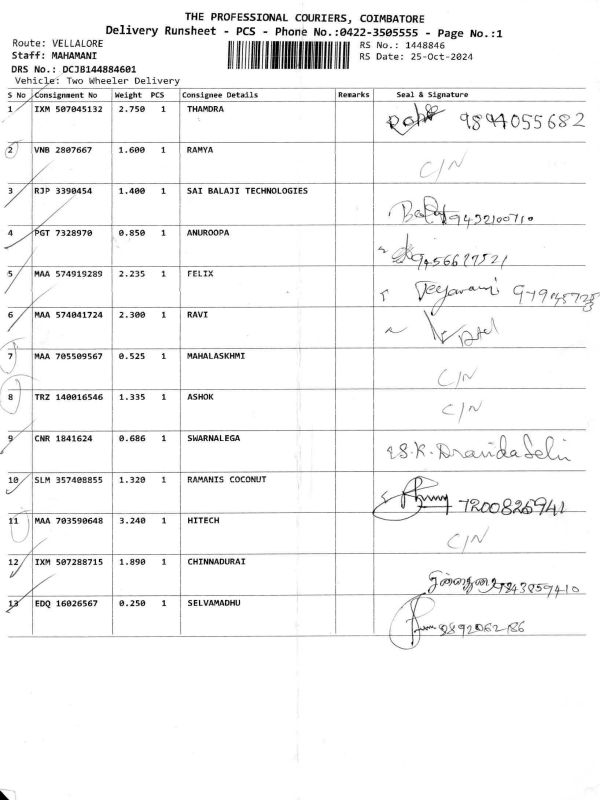 THE PROFESSIONAL COURIERS, COIMBATORE
Delivery Runsheet - PCS - Phone No.:0422-3505555 - Page No.:1
Route: VELLALORE RS No.: 1448846
Staff: MAHAMANI RS Date: 25-Oct-2024
DRS No.: DCJB144884601
Vehicle: Two Wheeler Delivery
S No Consignment No Weight PCS Consignee Details Remarks Seal & Signature
1 IXM 507045132 2.750 1 THAMDRA 9894055682
2 VNB 2807667 1.600 1 RAMYA C/N
3 RJP 3390454 1.400 1 SAI BALAJI TECHNOLOGIES
4 PGT 7328970 0.850 1 ANUROOPA
5 MAA 574919289 2.235 1 FELIX
6 MAA 574041724 2.300 1 RAVI
7 MAA 705509567 0.525 1 MAHALASKHMI C/N
8 TRZ 140016546 1.335 1 ASHOK C/N
9 CNR 1841624 0.686 1 SWARNALEGA
10 SLM 357408855 1.320 1 RAMANIS COCONUT 7200826941
11 MAA 703590648 3.240 1 HITECH C/N
12 IXM 507288715 1.890 1 CHINNADURAI
13 EDQ 16026567 0.250 1 SELVAMADHU